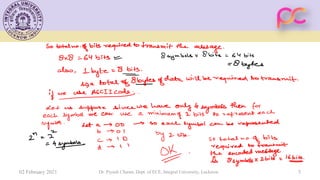 So total no. of bits required to transmit the message.
8x8 = 64 bits
8 symbols = 8 bits = 64 bits
= 8 bytes
also, 1 byte = 8 bits.
So, total of 8 bytes of data, will be required to transmit.
if we use ASCII code.
Let us suppose since we have only 4 symbols then for
each symbol we can use a minimum of 2 bits to represent each
symbol.
let a → 00
b → 01
c → 10
d → 11
so each symbol can be represented
by 2 bits.
2ⁿ = 2²
= 4 symbols
OK
total no. of bits
required to transmit
the encoded message
is 8 symbols x 2 bits = 16 bits.
02 February 2021
Dr. Piyush Charan, Dept. of ECE, Integral University, Lucknow
5